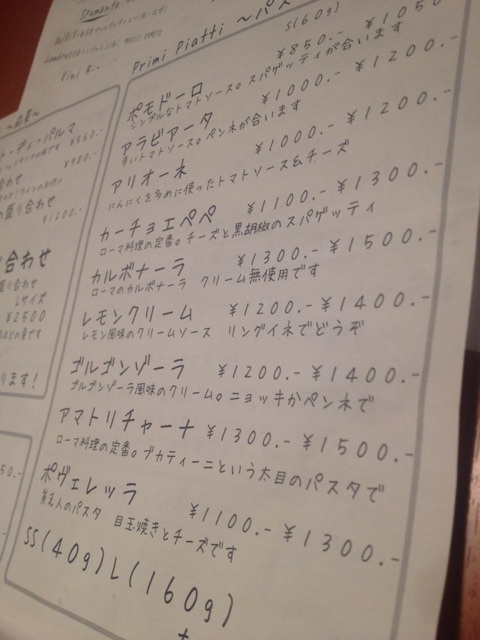 Spumante
Primi Piatti 〜パス
S(60g)
ポモドーロ ¥850.- ¥1050
シンプルなトマトソース。スパゲッティが合います
アラビアータ ¥1000.- ¥1200.-
辛いトマトソース。ペンネが合います
アリオーネ ¥1000.- ¥1200.-
にんにくを多めに使ったトマトソース&チーズ
カーチョエペペ ¥1100.- ¥1300.-
ローマ料理の定番。チーズと黒胡椒のスパゲッティ
カルボナーラ ¥1300.- ¥1500.-
ローマのカルボナーラ クリーム無使用です
レモンクリーム ¥1200.- ¥1400.-
レモン風味のクリームソース リングイネでどうぞ
ゴルゴンゾーラ ¥1200.- ¥1400.-
ゴルゴンゾーラ風味のクリーム。ニョッキかペンネで
アマトリチャーナ ¥1300.- ¥1500.-
ローマ料理の定番。ブカティーニという太目のパスタで
ポヴェレッラ ¥1100.- ¥1300.-
貧乏人のパスタ 目玉焼きとチーズです
SS(40g) L(160g)
ト・ディ・パルマ
¥980.-
の盛り合わせ
¥1200.-
り合わせ
盛り合わせ
Lサイズ
¥2500
ります!
50.-